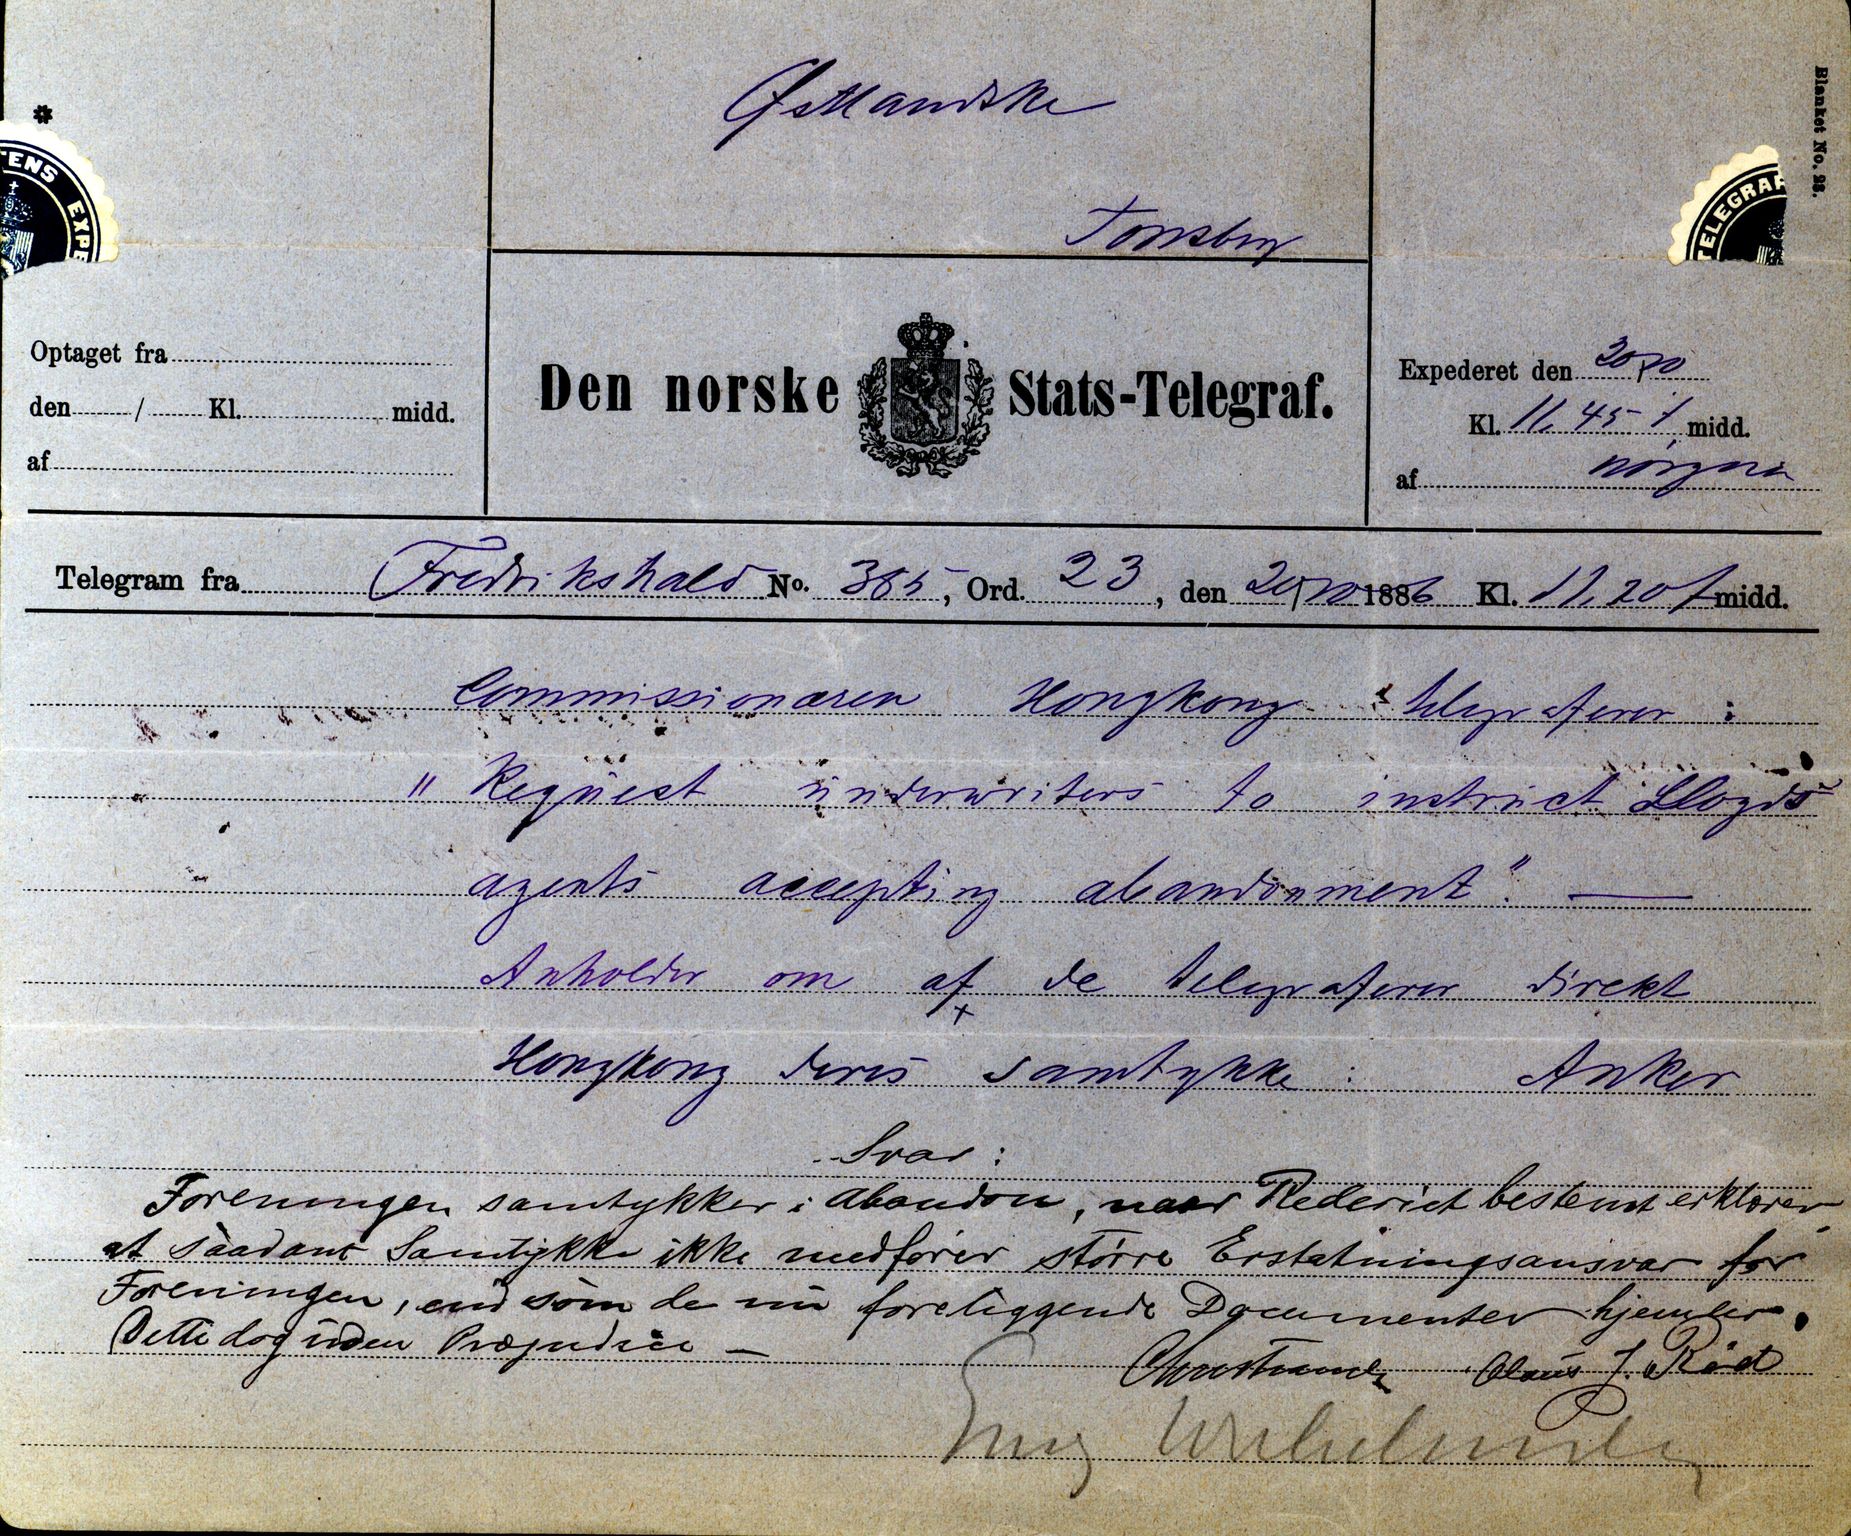 Østlandske
Tønsberg
Blanket No. 28.
TENS EXPE
TELEGRAF
Optaget fra
den / Kl. midd.
af
Den norske Stats-Telegraf.
Expederet den 20/10
Kl. 11,45 f midd.
af
Telegram fra Fredrikshald No. 385, Ord. 23, den 20/10 1886 Kl. 11,20 f midd.
Commissionæren Hongkong telegraferer :
" Request underwriters to instruct Lloyds
agents accepting abandonment". —
Anholder om af de telegraferer direkt
Hongkong deres samtykke : Anker
Svar :
Foreningen samtykker i abandon, naar Rederiet bestemt erklærer,
at saadant Samtykke ikke medfører større Erstatningsansvar for
Foreningen, end som de nu foreliggende Documenter hjemler.
Dette dog uden Præjudice —
Claus J. Röd